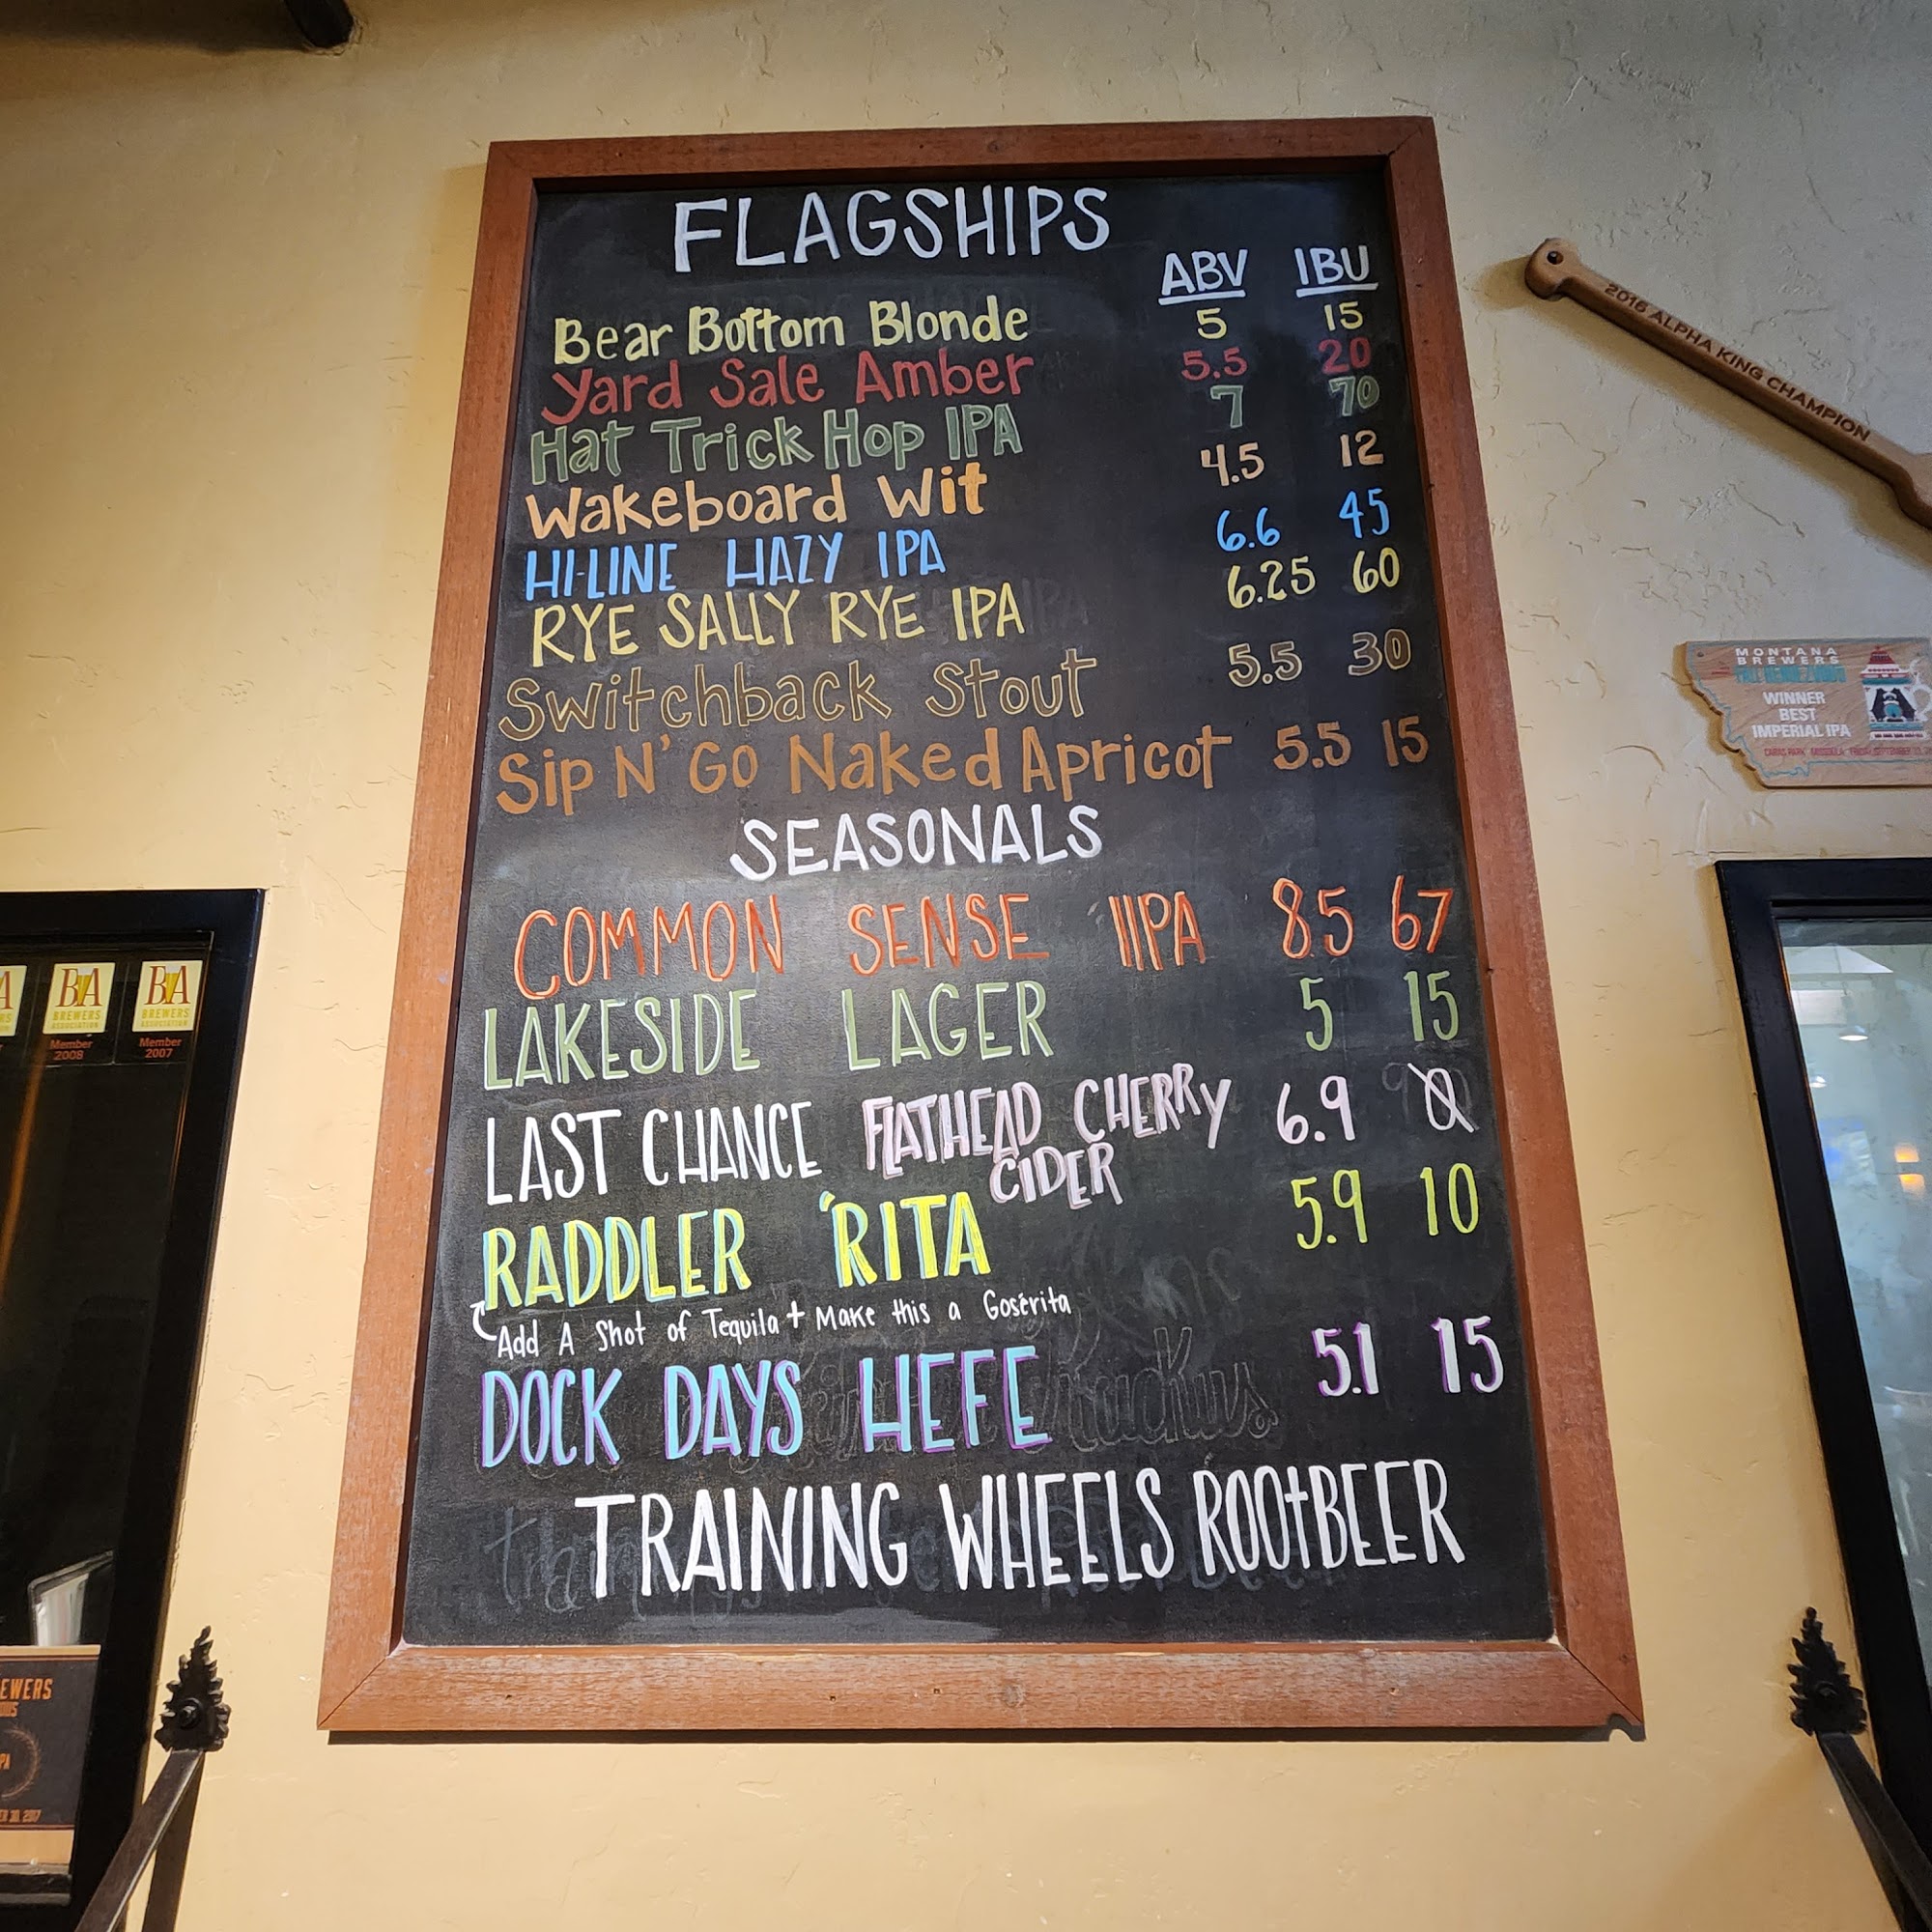 FLAGSHIPS
ABV IBU
Bear Bottom Blonde 5 15
Yard Sale Amber 5.5 20
Hat Trick Hop IPA 7 70
Wakeboard Wit 4.5 12
HI-LINE HAZY IPA 6.6 45
RYE SALLY RYE IPA 6.25 60
Switchback Stout 5.5 30
Sip N' Go Naked Apricot 5.5 15
SEASONALS
COMMON SENSE IIPA 8.5 67
LAKESIDE LAGER 5 15
LAST CHANCE FLATHEAD CHERRY 6.9
CIDER
RADDLER 'RITA 5.9 10
Add A Shot of Tequila + Make this a Goserita
DOCK DAYS HEFE 5.1 15
TRAINING WHEELS ROOtBEER
2016 ALPHA KING CHAMPION
MONTANA
BREWERS
WINNER
BEST
IMPERIAL IPA
BA
BREWERS
ASSOCIATION
Member
2008
BA
BREWERS
ASSOCIATION
Member
2007